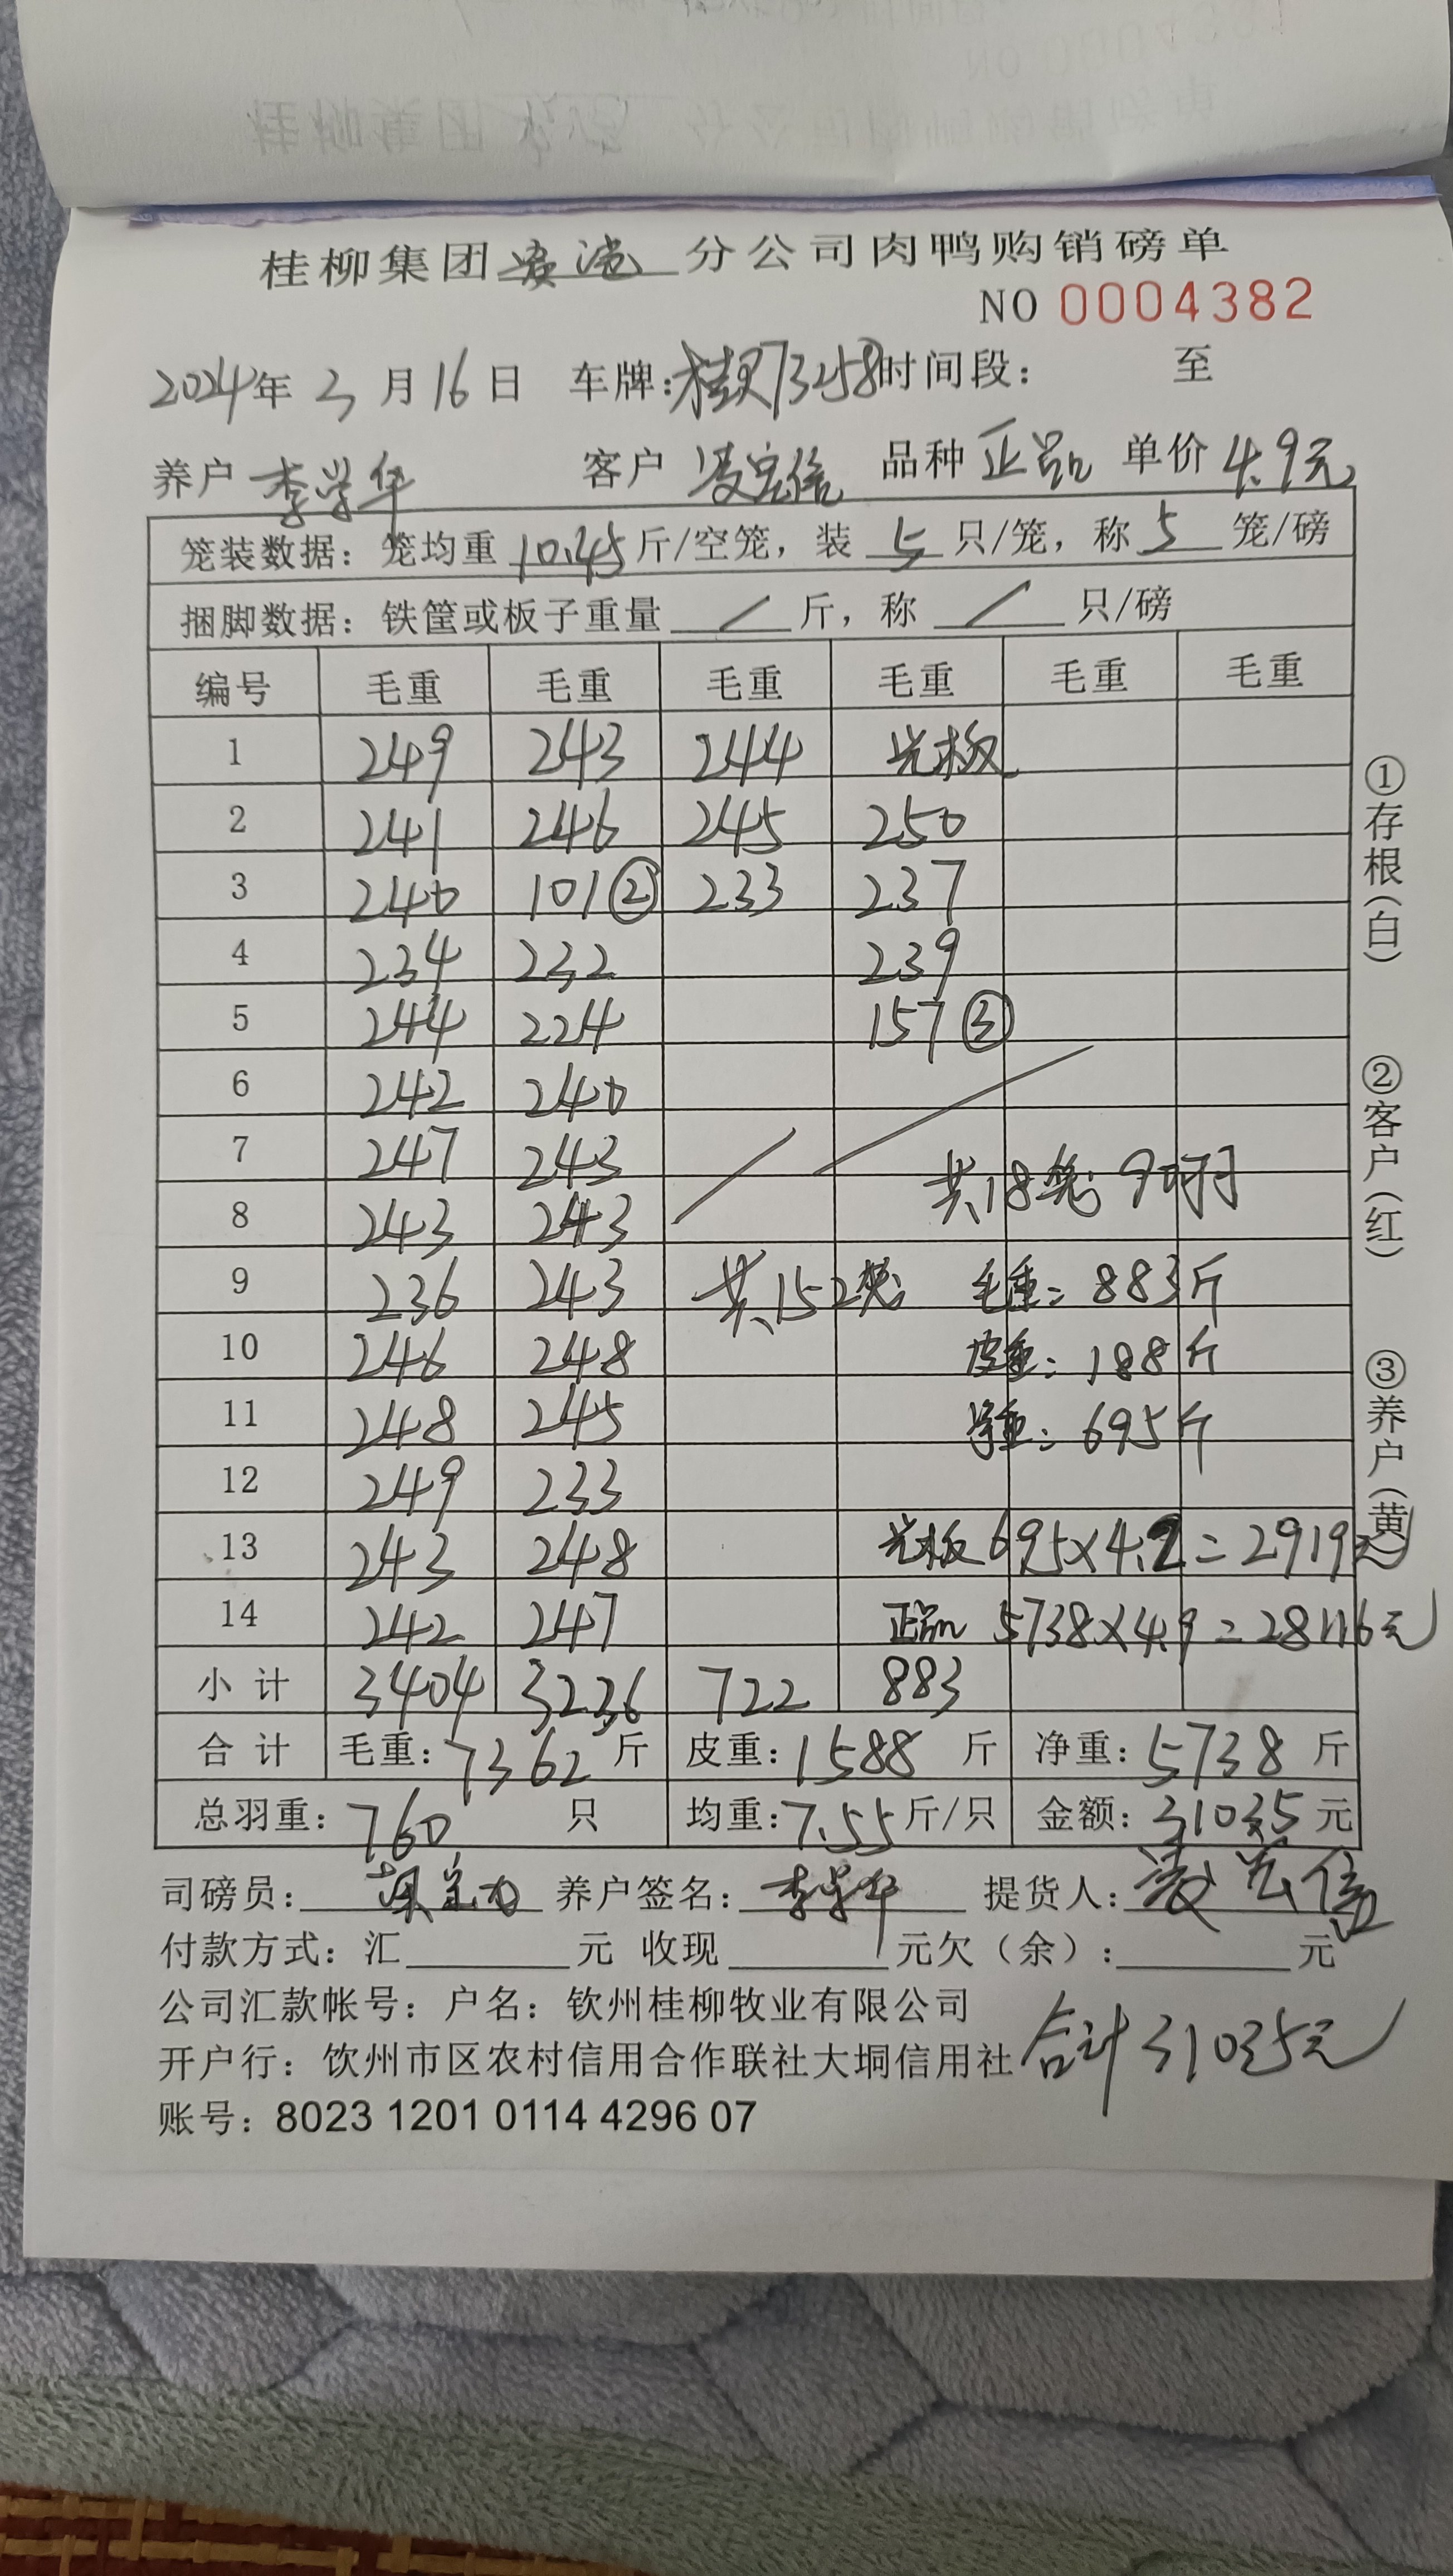 桂柳集团 分公司肉鸭购销磅单
NO 0004382
2024年3月16日 车牌:桂 73258 时间段: 至
养户 李学华 客户 凌宏信 品种 正品 单价 4.9元
笼装数据: 笼均重 10.45 斤/空笼, 装 5 只/笼, 称 5 笼/磅
捆脚数据: 铁筐或板子重量 / 斤, 称 / 只/磅
编号 毛重 毛重 毛重 毛重 毛重 毛重
1 249 243 244 光板
2 241 246 245 250
3 240 101② 233 237
4 234 232 239
5 244 224 157③
6 242 240
7 247 243 共18笼 90只
8 243 243
9 236 243 共152笼 毛重: 883斤
10 246 248 皮重: 188斤
11 248 245 净重: 695斤
12 249 233
13 243 248 光板 695×4.2=2919元
14 242 247 正品 5738×4.9=28116元
小计 3404 3236 722 883
合计 毛重: 7362 斤 皮重: 1588 斤 净重: 5738 斤
总羽重: 760 只 均重: 7.55 斤/只 金额: 31035 元
司磅员: 养户签名: 李学华 提货人: 凌宏信
付款方式: 汇 元 收现 元欠(余): 元
公司汇款帐号: 户名: 钦州桂柳牧业有限公司
合计 31035元
开户行: 钦州市区农村信用合作联社大垌信用社
账号: 8023 1201 0114 4296 07
①存根(白)
②客户(红)
③养户(黄)